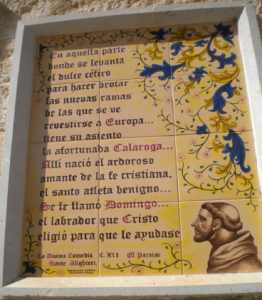 En aquella parte
donde se levanta
el dulce céfiro
para hacer brotar
las nuevas ramas
de las que se ve
revestirse a Europa...
tiene su asiento
la afortunada Calaroga...
Allí nació el ardoroso
amante de la fe cristiana,
el santo atleta benigno...
Se le llamó Domingo...
el labrador que Cristo
eligió para que le ayudase
La Divina Comedia C. XII El Paraiso
Dante Alighieri.